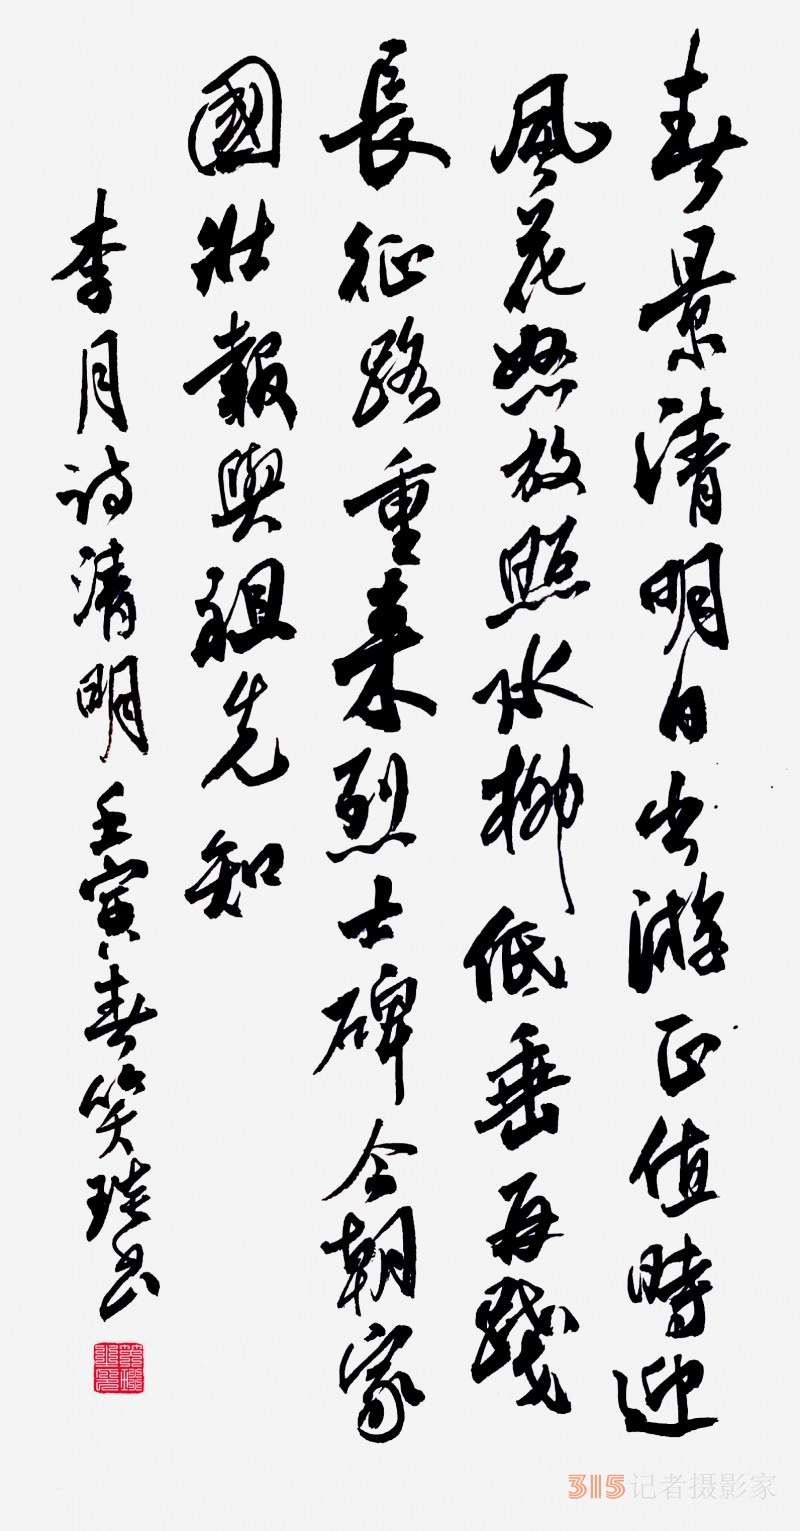 春景清明日出游正值時迎
風花怒放照水柳低垂再踐
長征路重來烈士碑今朝家
國壯報與祖先知
李月诗清明壬寅春笑琰书
315记者摄影家